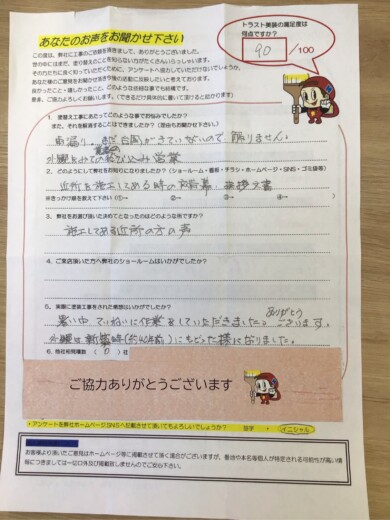 あなたのお声をお聞かせ下さい
トラスト美装の満足度は
何点ですか?
90 /100
この度は、弊社に工事のご依頼を頂きまして、ありがとうございました。
1. 塗替え工事にあたってどのような事でお悩みでしたか?
また、それを解消することはできましたか?(理由もお聞かせ下さい)
雨漏り。まだ台風がきていないので解りません。
外観をみての飛び込み営業
2. どのようにして弊社をお知りになりましたか?(ショールーム・看板・チラシ・ホームページ・SNS・ゴミ袋等)
近所を施工してある時の 挨拶文書
※きっかけ順を教えて下さい (①→ ②→ ③→ ④→ )
3. 弊社をお選び頂いた決めてとなったのはどのような所ですか?
施工してある近所の方の声
4. ご来店頂いた方へ弊社のショールームはいかがでしたか?
5. 実際に塗装工事をされた感想はいかがでしたか?
ありがとう
暑い中ていねいに作業をしていただきました。ございます。
外観は新築時(約40年前)にもどった様になりました。
6. 他社相見積数 ( 0 ) 社
ご協力ありがとうございます
*アンケートを弊社ホームページSNSへ記載させて頂いてもよろしいでしょうか? ・ イニシャル
お客様より頂いたご意見はホームページ等に掲載させて頂く場合がございますが、番地や本名等個人が特定される可能性が高い情
報につきましては一切口外及び掲載致しませんのでご安心下さい。